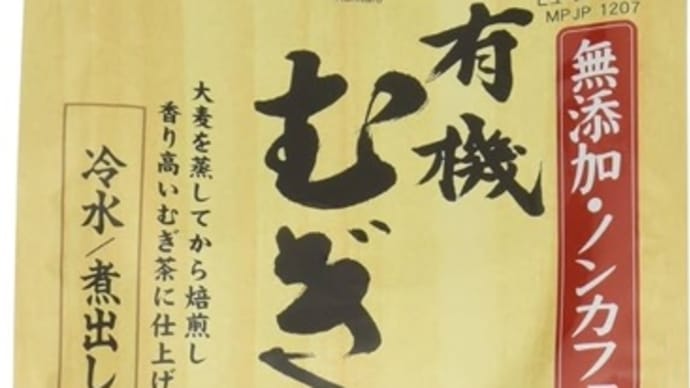 MPJP 1207
無添加・ノンカフ
有機
むぎ
大麦を蒸してから焙煎し
香り高いむぎ茶に仕上げ
冷水/煮出し